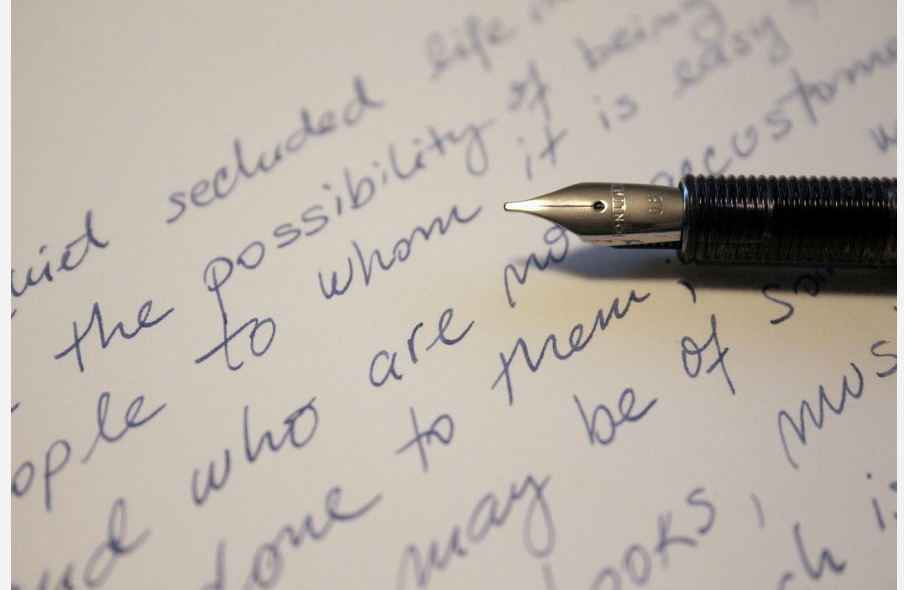 secluded life
the possibility of being
to whom it is easy
and who are accustome
done to them,
may be of
mus